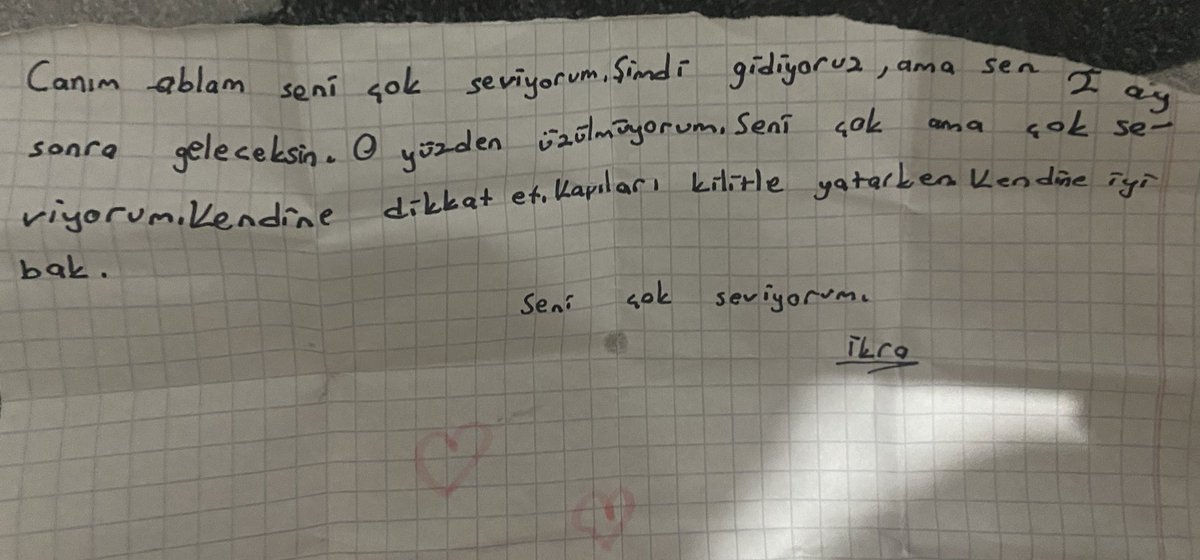 Canım ablam seni çok seviyorum. Şimdi gidiyoruz, ama sen 2 ay
sonra geleceksin. O yüzden üzülmüyorum. Seni çok ama çok se-
viyorum. Kendine dikkat et. Kapıları kilitle yatarken Kendine iyi
bak.
Seni çok seviyorum.
İkra